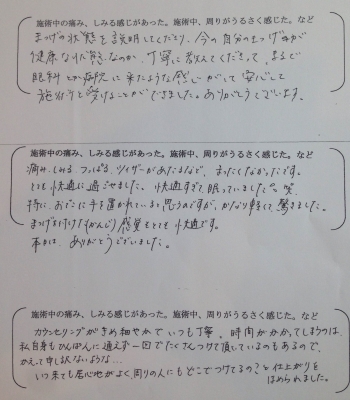 施術中の痛み、しみる感じがあった。施術中、周りがうるさく感じた。など
まつげの状態を説明してくださり、今の自分のまつげが
健康な状態なのか、丁寧に教えてくださって、まるで
眼科とか病院に来たような感じがして安心して
施術を受けることができました。ありがとうございます。
施術中の痛み、しみる感じがあった。施術中、周りがうるさく感じた。など
痛み、しみる、つっぱる、ツイザーがあたるなど、まったくなかったです。
とても快適に過ごせました。快適すぎて、眠っていました 笑
特に、おでこに手を置かれていると思うのですが、かなり軽くて、驚きました。
まつげを付けた かんじ 感覚もとても快適です。
本日は、ありがとうございました。
施術中の痛み、しみる感じがあった。施術中、周りがうるさく感じた。など
カウンセリングがきめ細やかでいつも丁寧。時間がかかってしまうのは、
私自身もひんぱんに通えず一回でたくさんつけて頂しているのもあるので、
かえって申し訳ないような...
いつ来ても居心地がよく、周りの人にもどこでつけてるの?と仕上がりを
ほめられました。